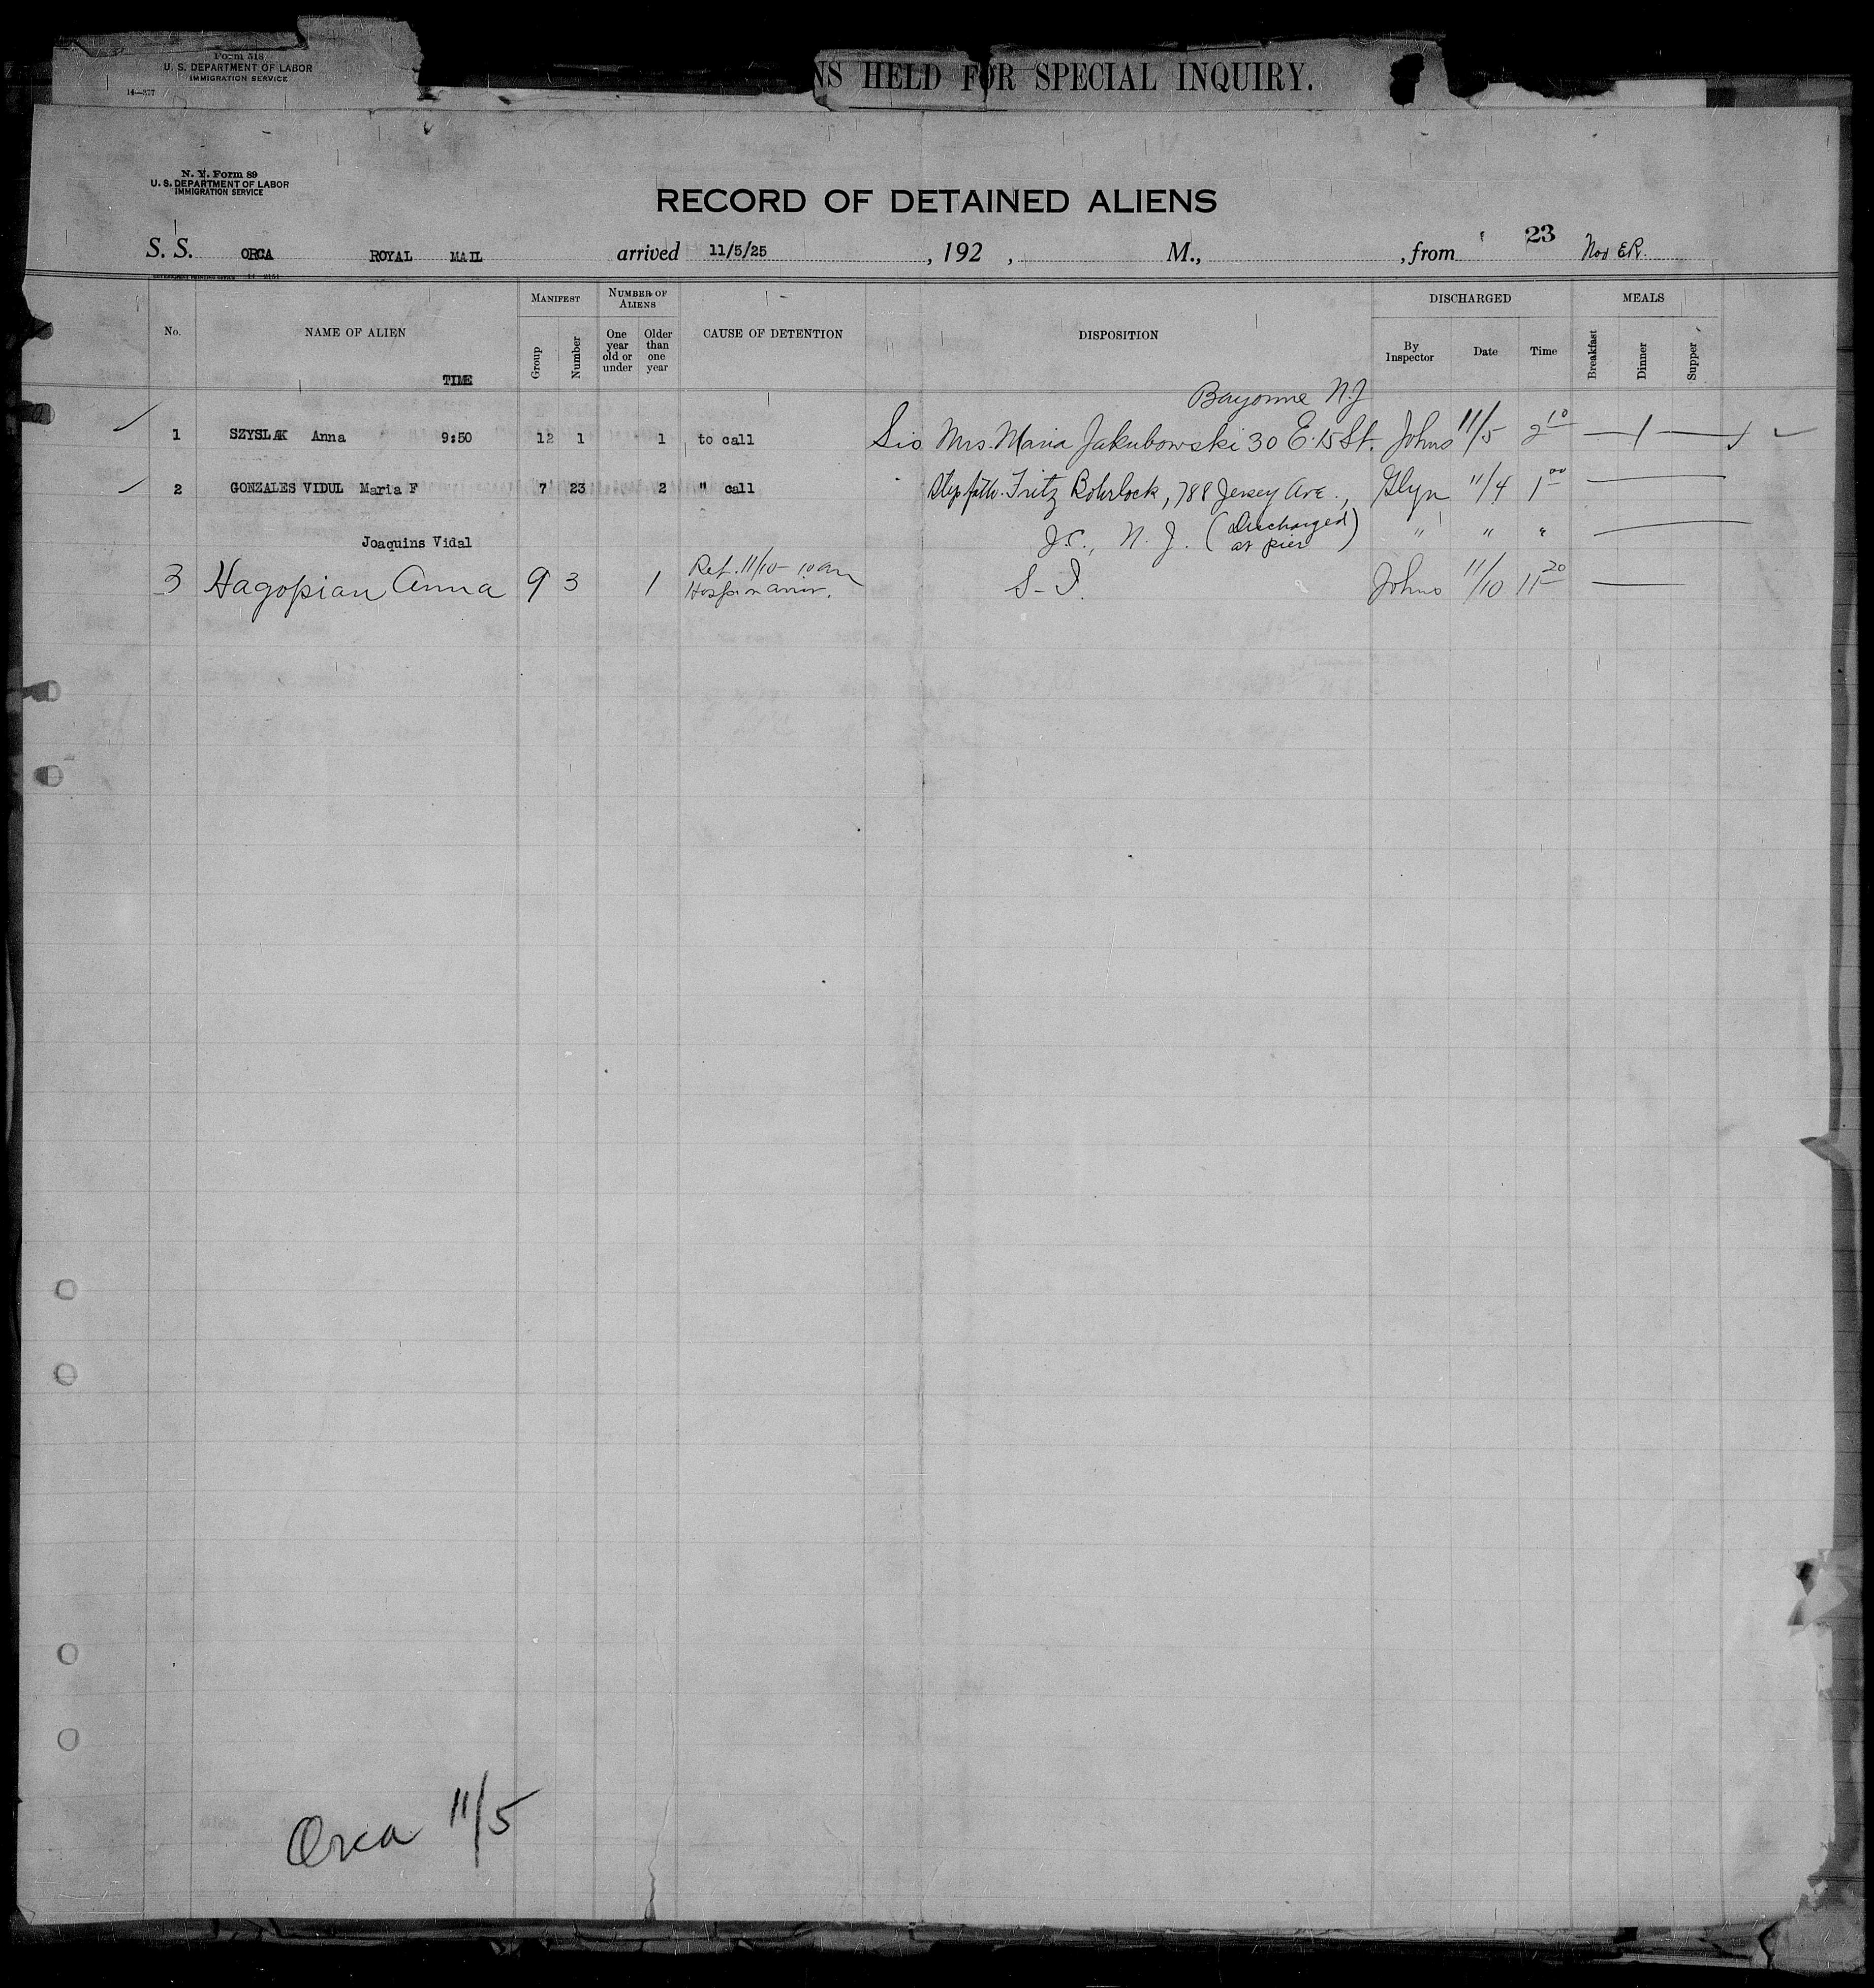 Form 518
U. S. DEPARTMENT OF LABOR
IMMIGRATION SERVICE
14—377
NS HELD FOR SPECIAL INQUIRY.
N. Y. Form 89
U. S. DEPARTMENT OF LABOR
IMMIGRATION SERVICE
RECORD OF DETAINED ALIENS
S. S. ORCA ROYAL MAIL arrived 11/5/25, 192 , M., , from 23
No. NAME OF ALIEN TIME MANIFEST Group Number NUMBER OF ALIENS One year old or under Older than one year CAUSE OF DETENTION DISPOSITION DISCHARGED By Inspector Date Time MEALS Breakfast Dinner Supper
Bayonne N.J
1 SZYSLAK Anna 9:50 12 1 1 to call Sis Mrs. Maria Jakubowski 30 E. 15 St. Johns 11/5 2 10 — 1 —
2 GONZALES VIDUL Maria F 7 23 2 " call Stepfath. Fritz Bohrlock, 788 Jersey Ave., Glyn 11/4 1 00 —
Joaquins Vidal J.C., N. J. (Discharged at pier) " " " —
3 Hagopian Anna 9 3 1 Ret. 11/10 - 10 am Hosp on arriv. S-I. Johns 11/10 11 20 —
Orca 11/5